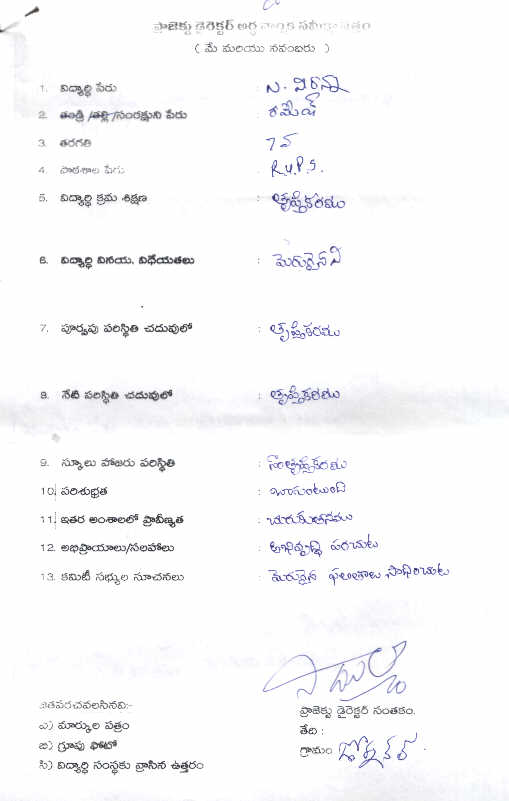 ప్రాజెక్టు డైరెక్టర్ అర్ధ వార్షిక సమీక్షా పత్రం
( మే మరియు నవంబరు )
1. విద్యార్థి పేరు : N. వీరన్నా
2. తండ్రి /తల్లి /సంరక్షుని పేరు : రమేష్
3. తరగతి : 7 వ
4. పాఠశాల పేరు : R.U.P.S.
5. విద్యార్థి క్రమ శిక్షణ : తృప్తికరము
6. విద్యార్థి వినయ, విధేయతలు : మెరుగైనవి
7. పూర్వపు పరిస్థితి చదువులో : తృప్తికరము
8. నేటి పరిస్థితి చదువులో : తృప్తికరము
9. స్కూలు హాజరు పరిస్థితి : సంతృప్తికరము
10. పరిశుభ్రత : బాగుంటుంది
11. ఇతర అంశాలలో ప్రావీణ్యత : చురుకుతనము
12. అభిప్రాయాలు/సలహాలు : అభివృద్ధి పరచుట
13. కమిటీ సభ్యుల సూచనలు : మెరుగైన ఫలితాలు సాధించుట
జతపరచవలసినవి:-
ఎ) మార్కుల పత్రం
బి) గ్రూపు ఫోటో
సి) విద్యార్థి సంస్థకు వ్రాసిన ఉత్తరం
ప్రాజెక్టు డైరెక్టర్ సంతకం.
తేది :
గ్రామం